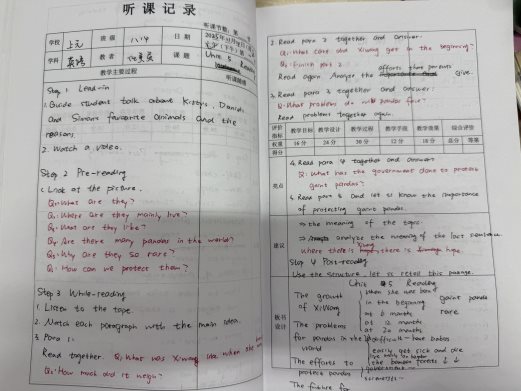 听课记录
听课节数: 第
学校 上元 班级 八14 日期 2025年11月
(下午) 第 节
学科 英语 教者 课题 Unit 5 Reading
教学主要过程 听课随感
Step 1 Lead-in
1. Guide student talk about Kitty's, Daniel's
and Simon's favourite animals and the
reasons.
2. Watch a video.
Step 2 Pre-reading
1. Look at the picture.
Q1: What are they?
Q2: Where are they mainly live?
Q3: What are they like?
Q4: Are there many pandas in the world?
Q5: Why are they so rare?
Q6: How can we protect them?
Step 3 While-reading
1. Listen to the tape.
2. Match each paragraph with the main idea.
3. Para 1:
Read together. Q1: What was Xiwang like when she was
Q2: How much did it weigh?
2. Read para 2 together and answer.
Q1: What can Xiwang get in the beginning?
Q2: Finish part 2
Read again Analyse the efforts that parents give.
3. Read para 3 together and answer:
Q: What problems do pandas face?
Read problems together again.
评价指标 教学目标 教学设计 教学过程 教学手段 教学效果 综合评价
权重 16分 24分 30分 12分 18分 总分 等第
得分
亮点
4. Read para 4 together and answer
Q: What has the government done to protect
giant pandas?
5. Read para 5 and let ss know the importance
of protecting giant pandas.
建议
⇒ the meaning of the topic
⇒ analyse the meaning of the last sentence.
Where there is Xiwang, there is hope.
Step 4 Post-reading
Use the structure, let ss retell this passage.
板书设计
Unit 5 Reading
The growth of Xi Wang
when she was born
in the beginning
at 6 months
at 12 months
at 20 months
giant panda
rare
The problems for pandas in the world
difficult — have babies
easily get sick and die
The efforts to protect pandas
government
scientists
The future for